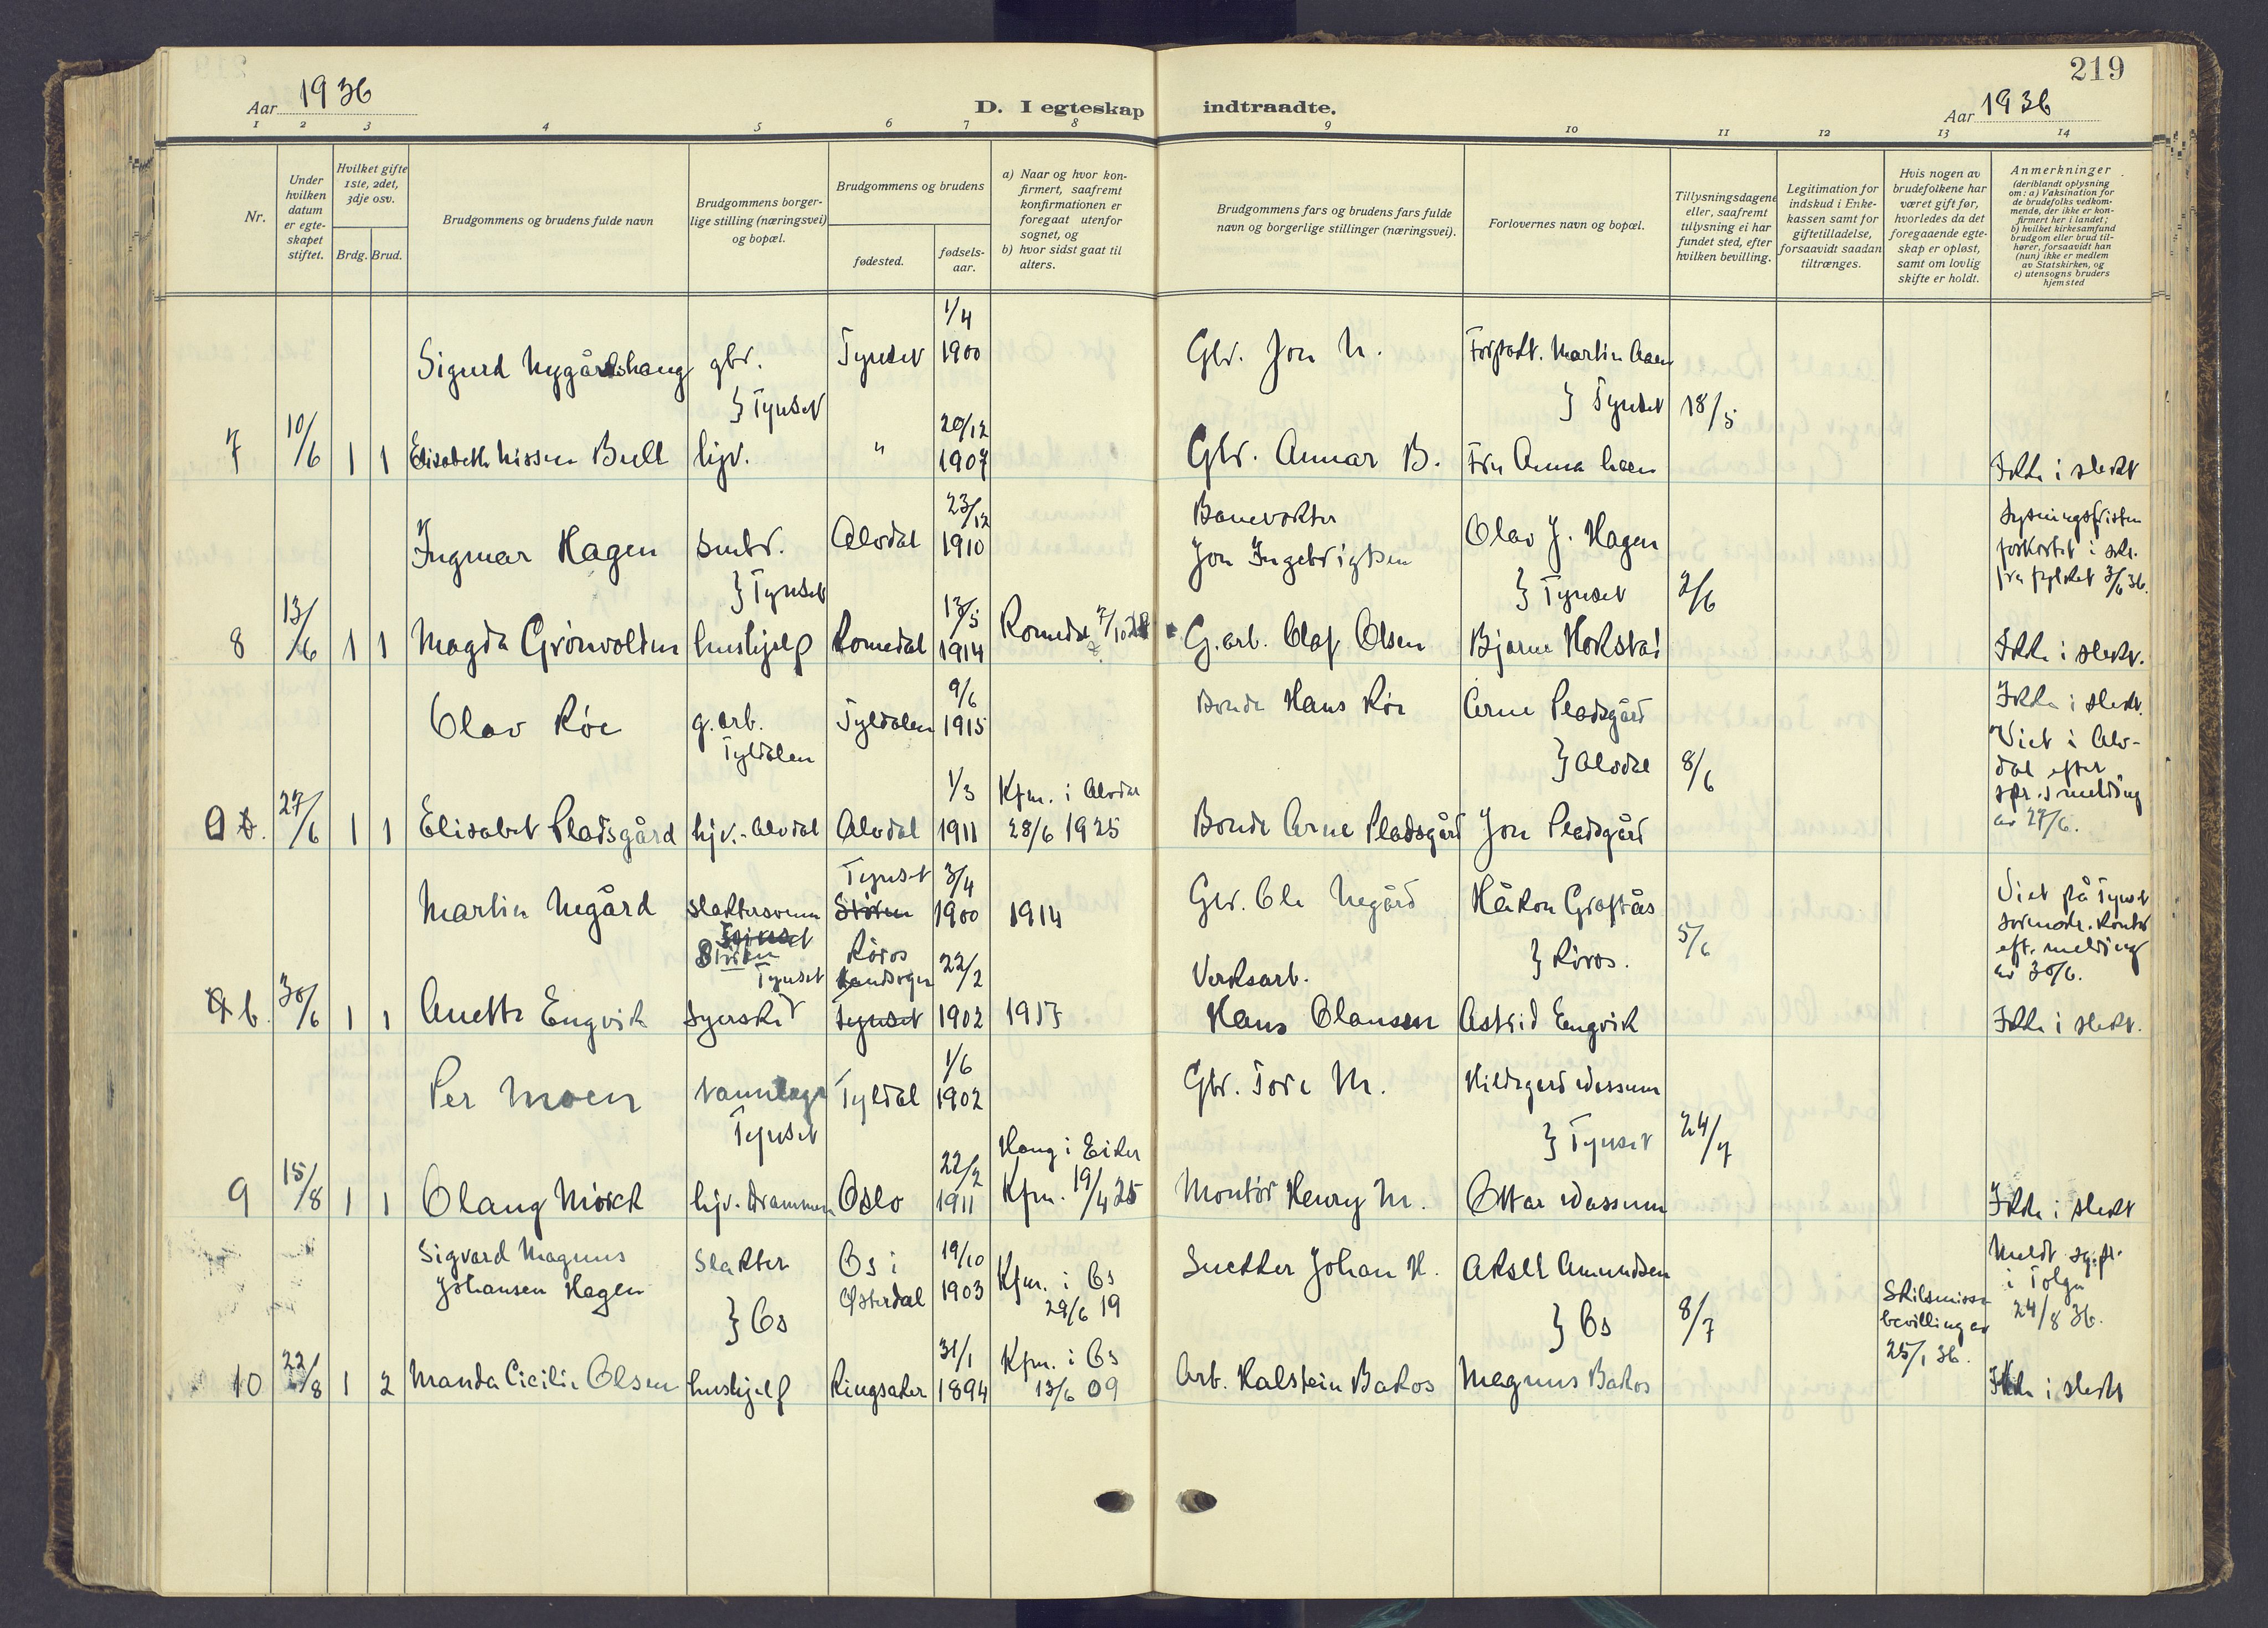 219
Aar 1936
D. I egteskap indtraadte.
Aar 1936
1 2 3 4 5 6 7 8 9 10 11 12 13 14
Nr.
Under hvilken datum er egteskapet stiftet.
Hvilket gifte 1ste, 2det, 3dje osv.
Brdg. Brud.
Brudgommens og brudens fulde navn
Brudgommens borgerlige stilling (næringsvei) og bopæl.
Brudgommens og brudens
fødested.
fødselsaar.
a) Naar og hvor konfirmert, saafremt konfirmationen er foregaat utenfor sognet, og
b) hvor sidst gaat til alters.
Brudgommens fars og brudens fars fulde navn og borgerlige stillinger (næringsvei).
Forlovernes navn og bopæl.
Tillysningsdagene eller, saafremt tillysning ei har fundet sted, efter hvilken bevilling.
Legitimation for indskud i Enkekassen samt for giftetilladelse, forsaavidt saadan tiltrænges.
Hvis nogen av brudefolkene har været gift før, hvorledes da det foregaaende egteskap er opløst, samt om lovlig skifte er holdt.
Anmerkninger
(deriblandt oplysning om: a) Vaksination for de brudefolks vedkommende, der ikke er konfirmert her i landet; b) hvilket kirkesamfund brudgom eller brud tilhører, forsaavidt han (hun) ikke er medlem av Statskirken, og c) utensogns bruders hjemsted
1/4
Sigurd Nygårdshaug gbr. Tynset 1900 Gbr. Jon N. Martin Aaen
} Tynset } Tynset 18/5
7 10/6 1 1 Elisabeth Nissen Bull hjv. " 20/12 1907 Gbr. Annar B. Fru Anna Aaen Ikke i slekt
Ingmar Hagen smbr. Alvdal 23/12 1910 Banevokter Jon Ingebrigtsen Olav J. Hagen Lysningsfristen forkortet i skr. fra fylket 3/6 36.
} Tynset } Tynset 2/6
8 13/6 1 1 Magda Grönvolden hushjelp Romedal 13/5 1914 Romedal 7/10 28 G.arb. Olaf Olsen Bjarne Hokstad Ikke i slekt.
Olav Röe g.arb. Tyldalen Tyldalen 9/6 1915 Bonde Hans Röe Arne Pladsgård Ikke i slekt.
} Alvdal 8/6 Viet i Alvdal efter spr.s melding av 27/6.
27/6 1 1 Elisabet Pladsgård hjv. - Alvdal Alvdal 1/3 1911 Kfm. i Alvdal 28/6 1925 Bonde Arne Pladsgård Jon Pladsgård
Martin Negård slaktersvenn Tynset Stören 3/4 1900 1914 Gbr. Ole Negård Håkon Graftås Viet på Tynset sorenskr. kontor eft. melding av 30/6.
Tynset Stören Tynset Röros Landsogn 22/2 Verksarb. } Röros. 5/6
b. 30/6 1 1 Anette Engvik syerske Tynset 1902 1917 Hans Olausen Astrid Engvik Ikke i slekt.
Per Moen Tynset Tyldal 1/6 1902 Gbr. Tore M. Hildegard Wassum
} Tynset 24/7
9 15/8 1 1 Olaug Mörck hjv. Drammen Oslo 22/2 1911 Haug i Eiker Kfm. 19/4 25 Montör Henry M. Ottar Wassum Ikke i slekt
Sigvard Magnus Johansen Hagen Slakter Os i Österdal 19/10 1903 Kfm. i Os 29/6 19 Snekker Johan H. Aksel Amundsen Meldt sg.pr. i Tolga 24/8 36.
} Os } Os 8/7 Skilsmissebevilling av 25/1 36.
10 22/8 1 2 Manda Cicilie Olsen hushjelp Ringsaker 31/1 1894 Kfm. i Os 13/6 09 Arb. Halstein Bakos Magnus Bakos Ikke i slekt